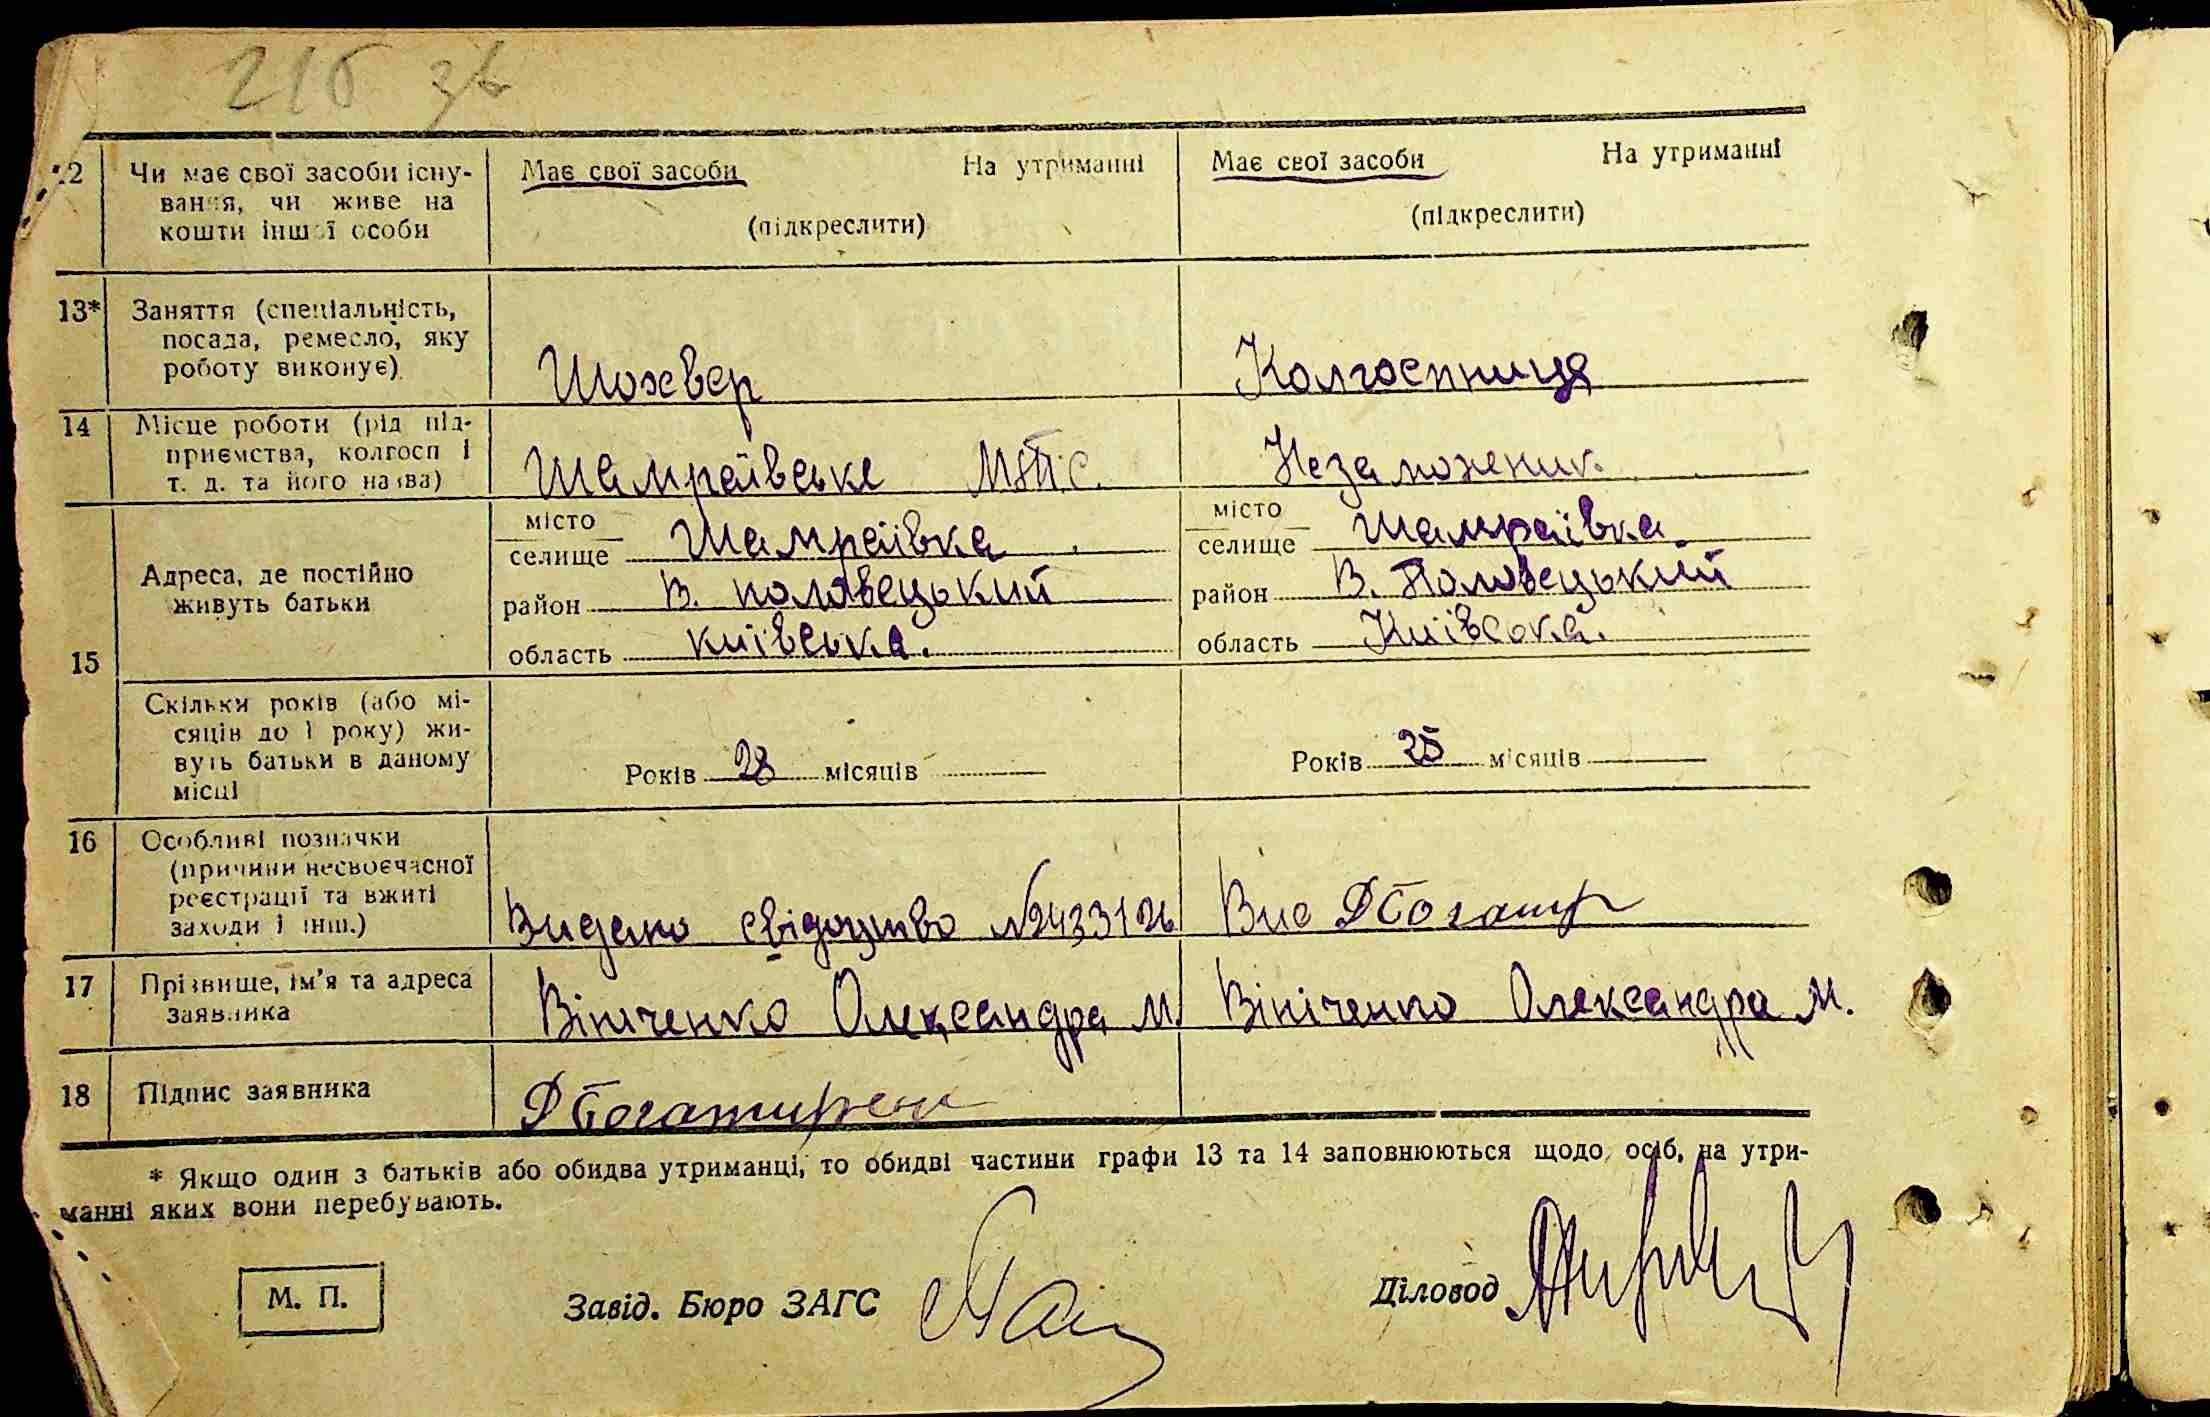 216 зв
12 Чи має свої засоби існу- Має свої засоби На утриманні Має свої засоби На утриманні
вання, чи живе на
кошти іншої особи (підкреслити) (підкреслити)
13* Заняття (спеціальність,
посада, ремесло, яку
роботу виконує) Шохвер Колгоспниця
14 Місце роботи (рід під-
приємства, колгосп і
т. д. та його назва) Шамраївське М.Т.С. Незаможник.
15 Адреса, де постійно
живуть батьки
місто
селище Шамраївка
район В. половецький
область київська.
місто
селище Шамраївка.
район В. Половецький
область Київська.
Скільки років (або мі-
сяців до 1 року) жи-
вуть батьки в даному
місці
Років 28 місяців Років 25 місяців
16 Особливі позначки
(причини несвоєчасної
реєстрації та вжиті
заходи і інш.)
Видано свідоцтво №2433126
17 Прізвище, ім'я та адреса
заявника
Вініченко Олександра М. Вініченко Олександра М.
18 Підпис заявника
* Якщо один з батьків або обидва утриманці, то обидві частини графи 13 та 14 заповнюються щодо осіб, на утри-
манні яких вони перебувають.
М. П. Завід. Бюро ЗАГС Діловод